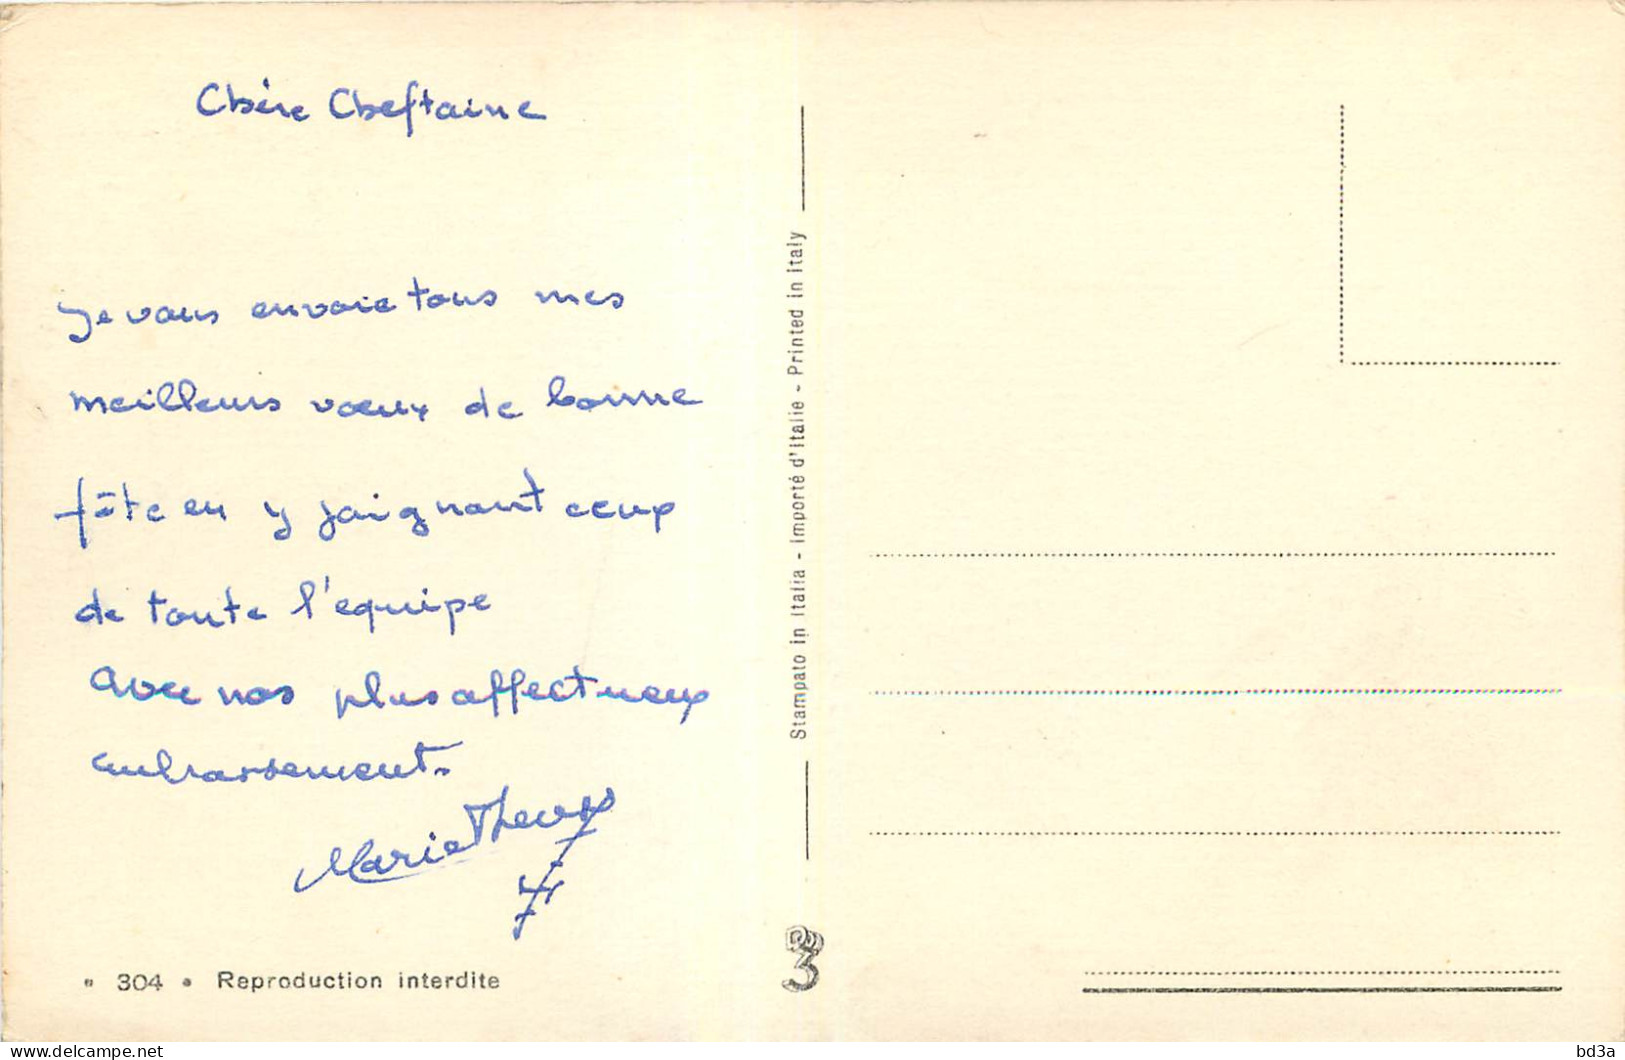 Chère Cheftaine
Je vous envoie tous mes
meilleurs voeux de bonne
fête en y joignant ceux
de toute l'equipe
avec nos plus affectueux
embrassement.
Marie
304 • Reproduction interdite
Stampato in Italia - Importé d'Italie - Printed in Italy
3
bd3a